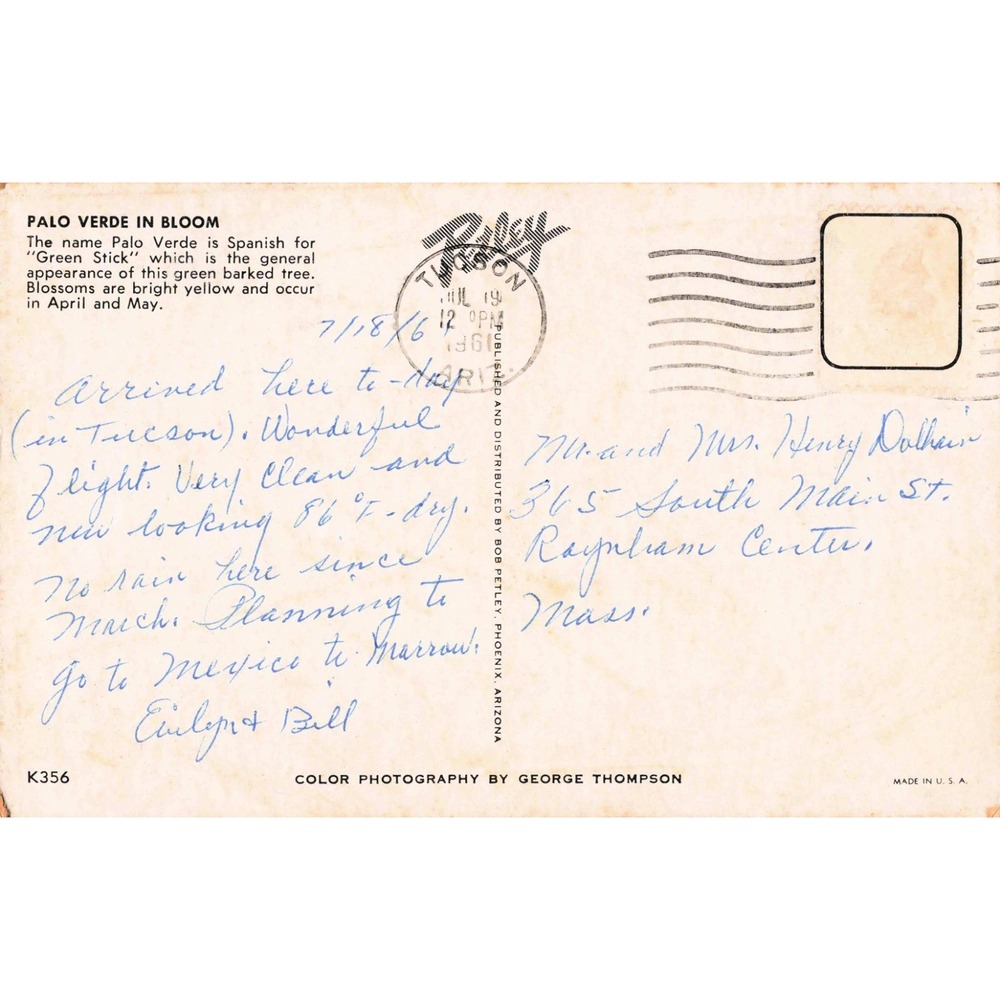 PALO VERDE IN BLOOM
The name Palo Verde is Spanish for
"Green Stick" which is the general
appearance of this green barked tree.
Blossoms are bright yellow and occur
in April and May.
Petley
TUCSON
JUL 19
12 PM
ARIZ.
7/18/6
Arrived here to-day
(in Tucson). Wonderful
flight. Very Clean and
new looking 86°F - dry.
No rain here since
March. Planning to
go to Mexico to-Morrow.
Evelyn + Bill
PUBLISHED AND DISTRIBUTED BY BOB PETLEY, PHOENIX, ARIZONA
Mr. and Mrs. Henry
365 South Main St.
Raynham Center,
Mass.
K356
COLOR PHOTOGRAPHY BY GEORGE THOMPSON
MADE IN U. S. A.